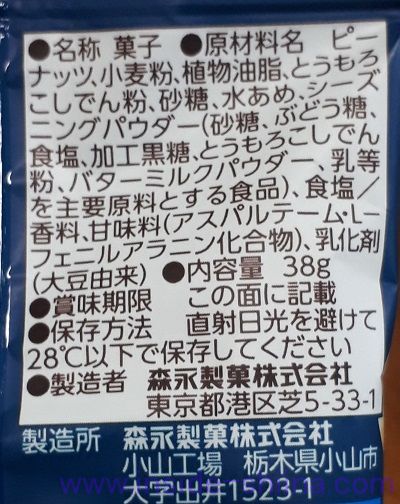 ●名称 菓子 ●原材料名 ピー
ナッツ、小麦粉、植物油脂、とうもろ
こしでん粉、砂糖、水あめ、シーズ
ニングパウダー(砂糖、ぶどう糖、
食塩、加工黒糖、とうもろこしでん
粉、バターミルクパウダー、乳等
を主要原料とする食品)、食塩／
香料、甘味料(アスパルテーム・L-
フェニルアラニン化合物)、乳化剤
(大豆由来) ●内容量 38g
●賞味期限 この面に記載
●保存方法 直射日光を避けて
28℃以下で保存してください
●製造者 森永製菓株式会社
東京都港区芝5-33-1
製造所 森永製菓株式会社
小山工場 栃木県小山市
大字出井1523-1